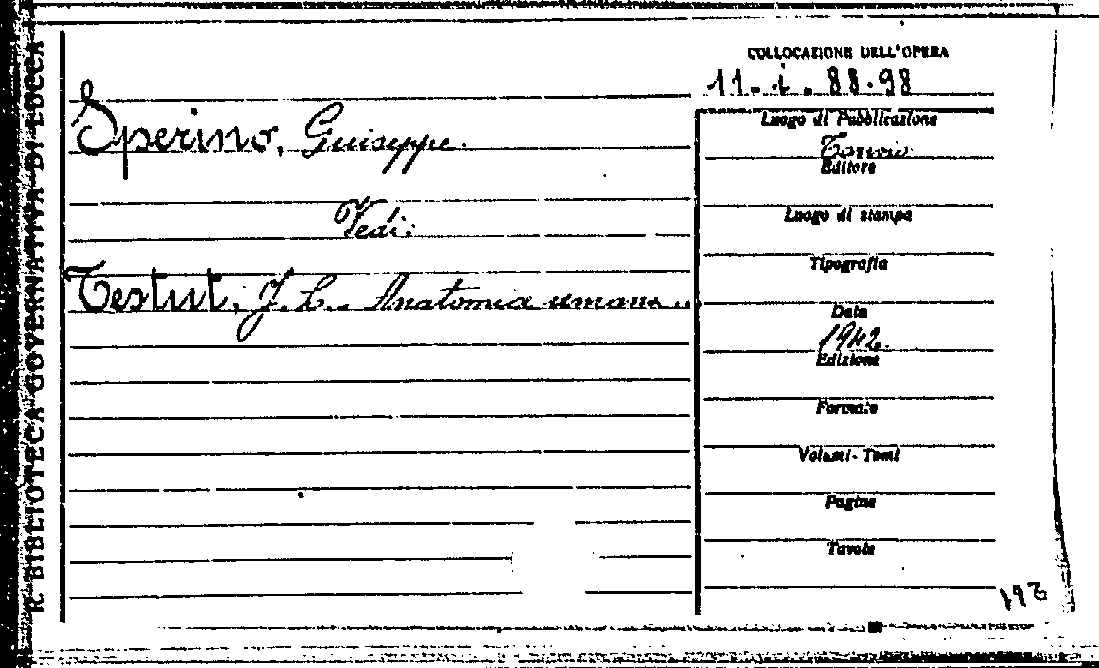 R. BIBLIOTECA GOVERNATIVA DI LUCCA
COLLOCAZIONE DELL'OPERA
11.i.88-98
Sperino, Giuseppe.
Vedi:
Testut, J. L. Anatomia umana...
Luogo di Pubblicazione
Torino
Editore
Luogo di stampa
Tipografia
Data
1942.
Edizione
Formato
Volumi-Tomi
Pagine
Tavole